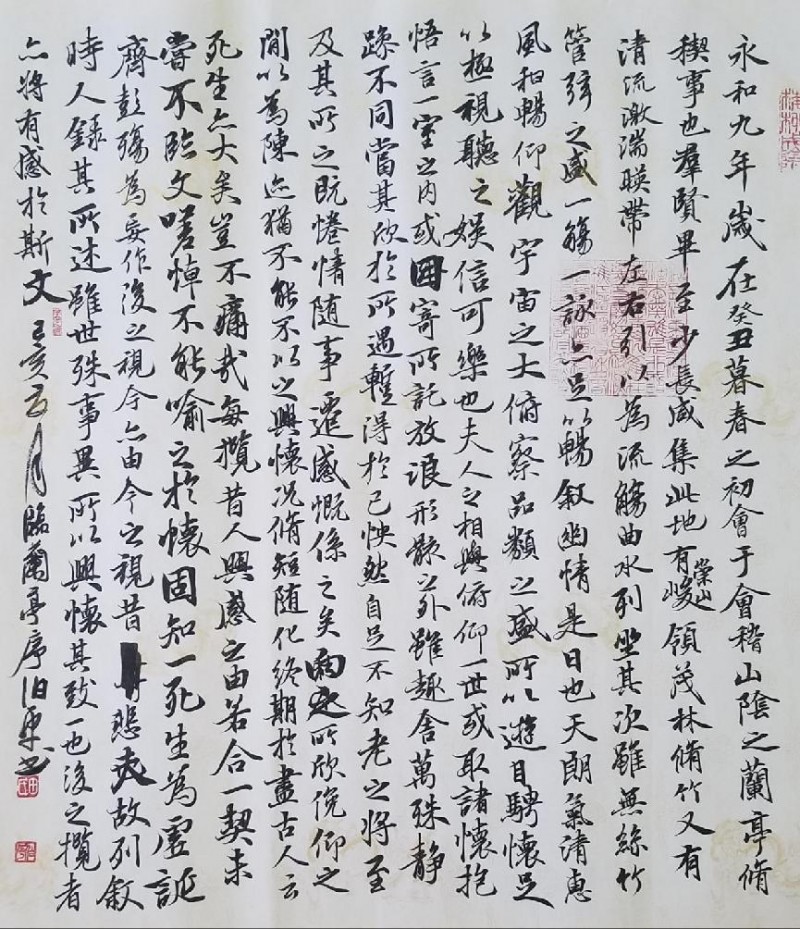 永和九年歲在癸丑暮春之初會于會稽山陰之蘭亭脩
稧事也羣賢畢至少長咸集此地有崇山峻領茂林脩竹又有
清流激湍暎帶左右引以為流觴曲水列坐其次雖無絲竹
管弦之盛一觴一詠亦足以暢敘幽情是日也天朗氣清惠
風和暢仰觀宇宙之大俯察品類之盛所以遊目騁懷足
以極視聽之娛信可樂也夫人之相與俯仰一世或取諸懷抱
悟言一室之內或因寄所託放浪形骸之外雖趣舍萬殊静
躁不同當其欣於所遇暫得於己怏然自足不知老之將至
及其所之既惓情随事遷感慨係之矣向之所欣俛仰之
閒以為陳迹猶不能不以之興懷況脩短随化終期於盡古人云
死生亦大矣豈不痛哉每攬昔人興感之由若合一契未
嘗不臨文嗟悼不能喻之於懷固知一死生為虛誕
齊彭殤為妄作後之視今亦由今之視昔悲夫故列敘
時人錄其所述雖世殊事異所以興懷其致一也後之攬者
亦將有感於斯文 己亥月臨蘭亭序伯書